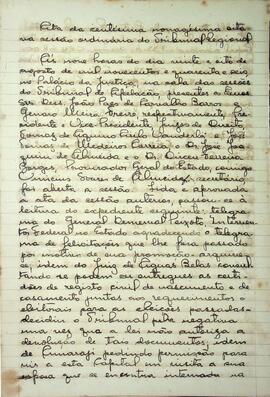 Ata da centesima nonagesima oitava
na sessão ordinária do Tribunal Regional
Às nove horas do dia vinte e oito de
agosto de mil novecentos e quarenta e seis,
no Palacio da Justiça, na sala das sessões
do Tribunal de Apelação, presentes os Exmos
Srs. Des. João Paes de Carvalho Barros e
Genaro Freire, respectivamente Pre-
sidente e Vice-Presidente, Juizes de Direito,
Tomaz de Aquino Cirilo Wanderlei e José
Tomas de Medeiros Correia, o Dr. José Joa-
quim de Almeida e o Dr. Dirceu Ferreira
Borges, Procurador Geral do Estado, comigo
de Almeida, secretario,
foi aberta a sessão. Lida e aprovada
a ata da sessão anterior, passou-se à
leitura do expediente seguinte: telegra-
ma do General Demerval Peixoto, Interven-
tor Federal no Estado agradecendo o telegra-
ma de felicitação que lhe fora passado
por motivo de sua promoção - arquive-
se; idem do Juiz de Aguas Belas consul-
tando se podem ser entregues as certi-
dões de registo civil de nascimento e de
casamento juntas aos requerimentos
eleitorais para as eleições passadas -
decidiu o Tribunal pela negativa
uma vez que a lei não autoriza a
devolução de tais documentos; idem
de Limoeiro pedindo permissão para
vir a esta capital em visita a sua
esposa que se encontra internada na